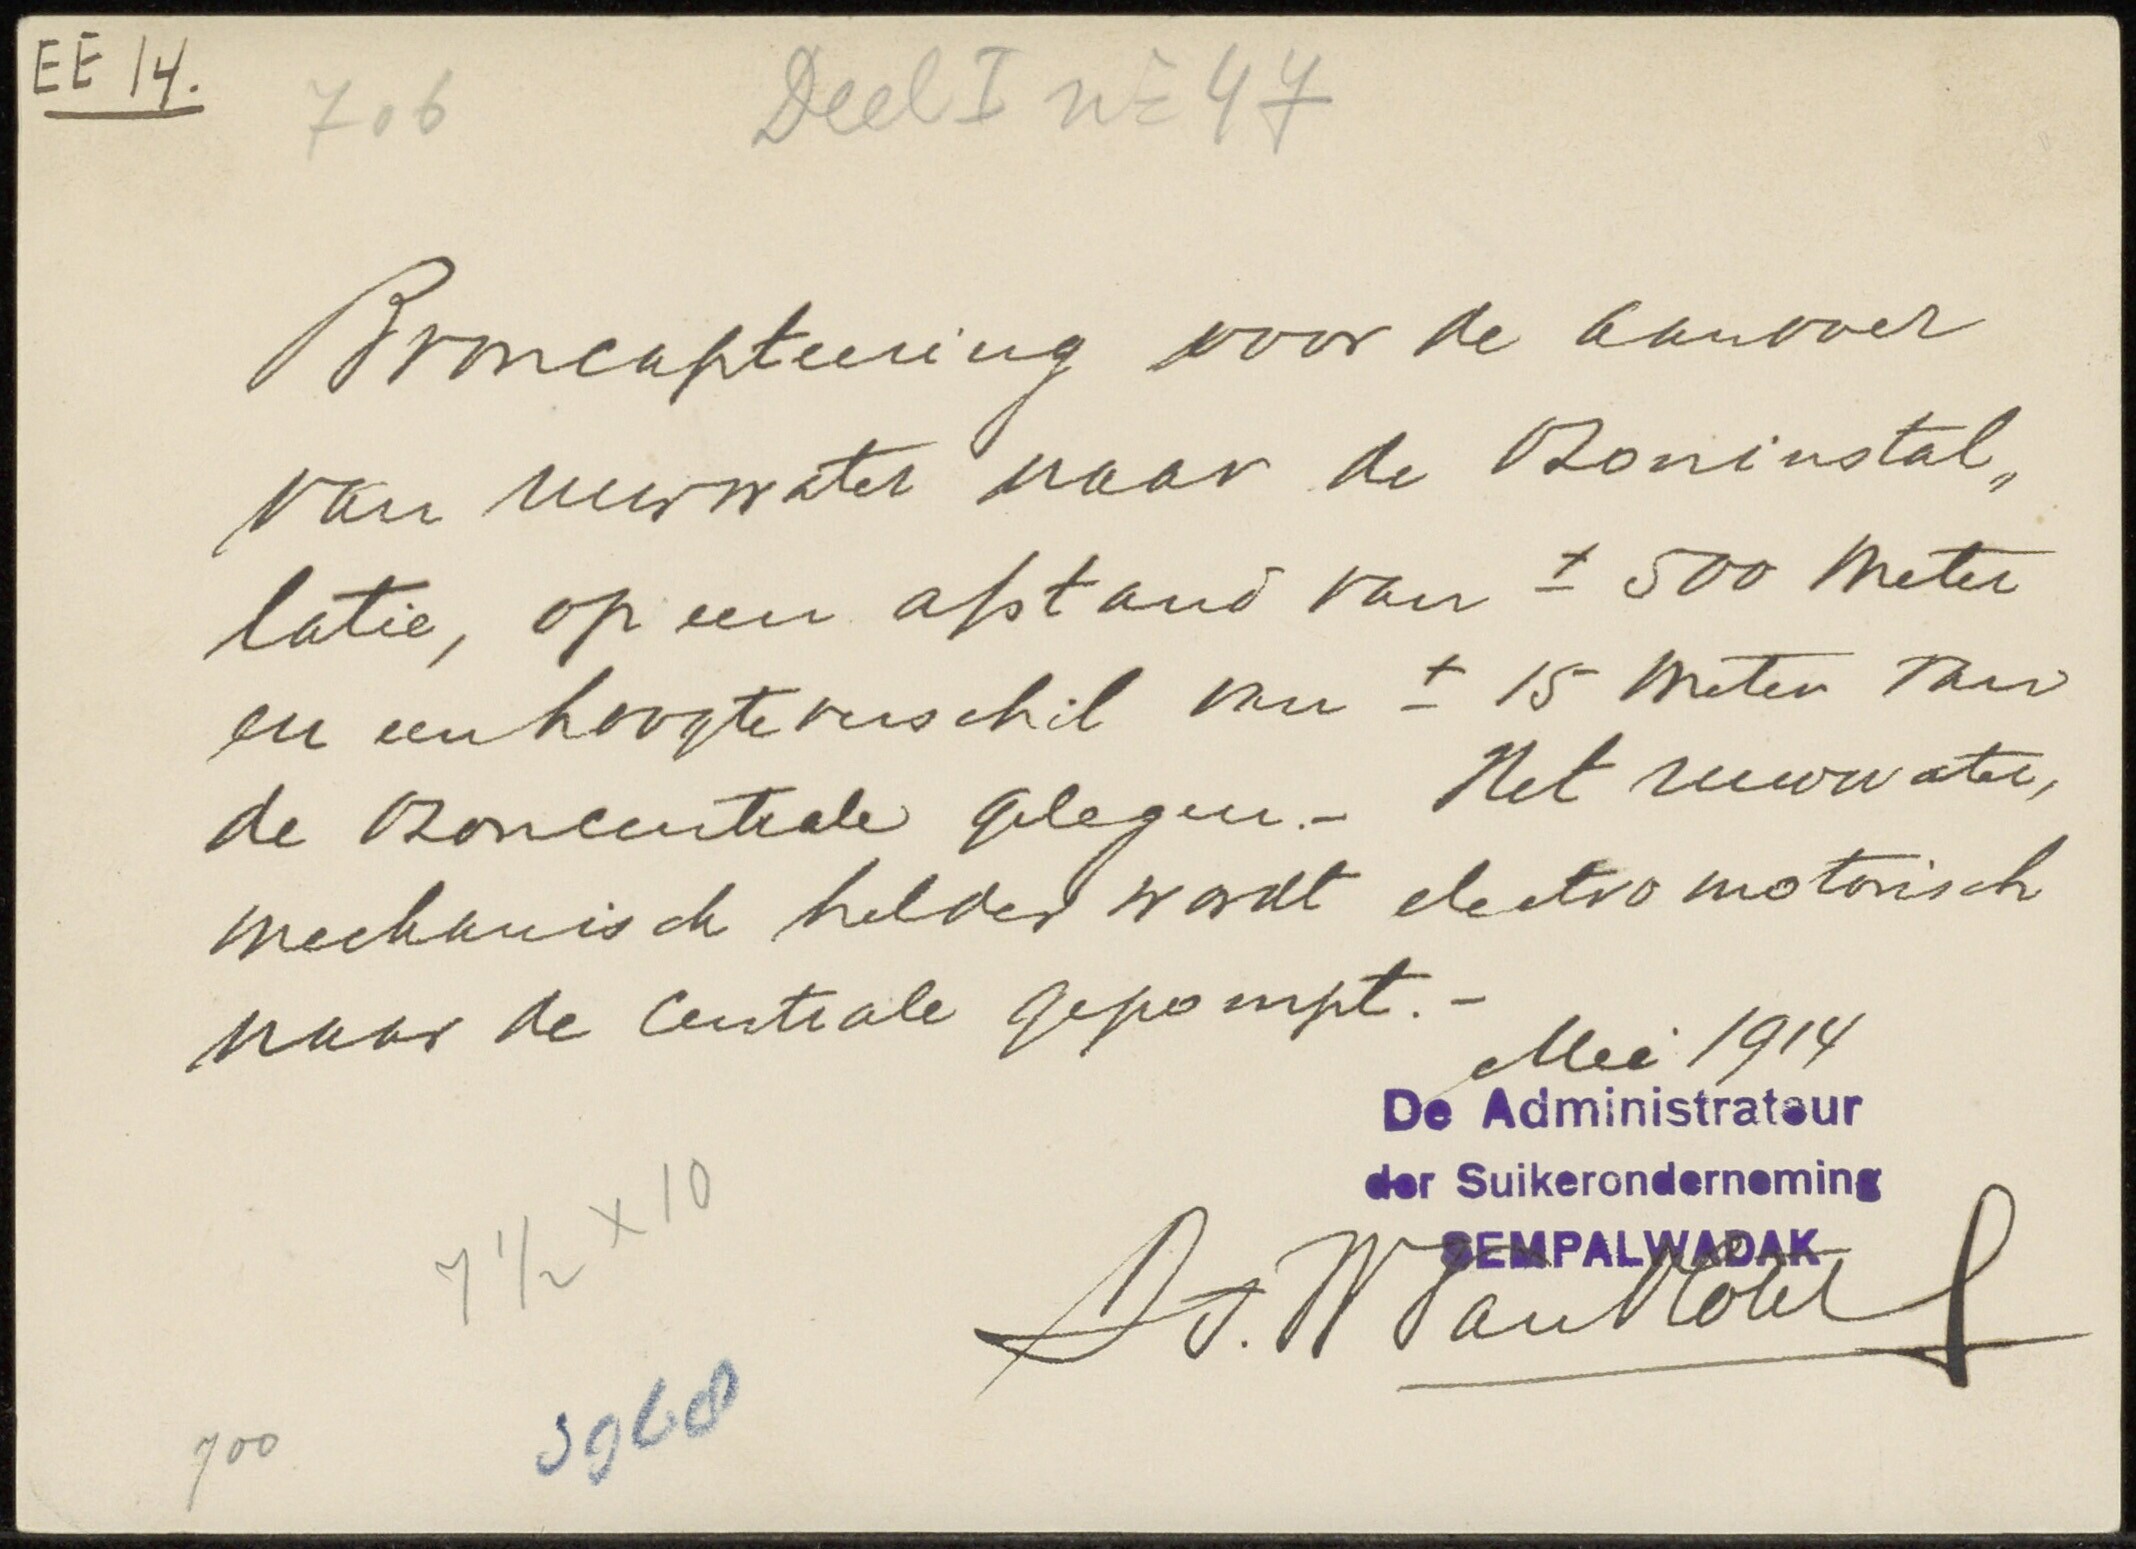 EE 14.
706
Deel I no 47
Broncapteering voor de aanvoer
van ruwwater naar de Ozoninstal„
latie, op een afstand van ± 500 Meter
en een hoogteverschil van ± 15 Meter van
de Ozoncentrale gelegen.- Het ruwwater,
mechanisch helder wordt electromotorisch
naar de Centrale gepompt.-
Mei 1914
De Administrateur
der Suikeronderneming
SEMPALWADAK
7 1/2 x 10
700